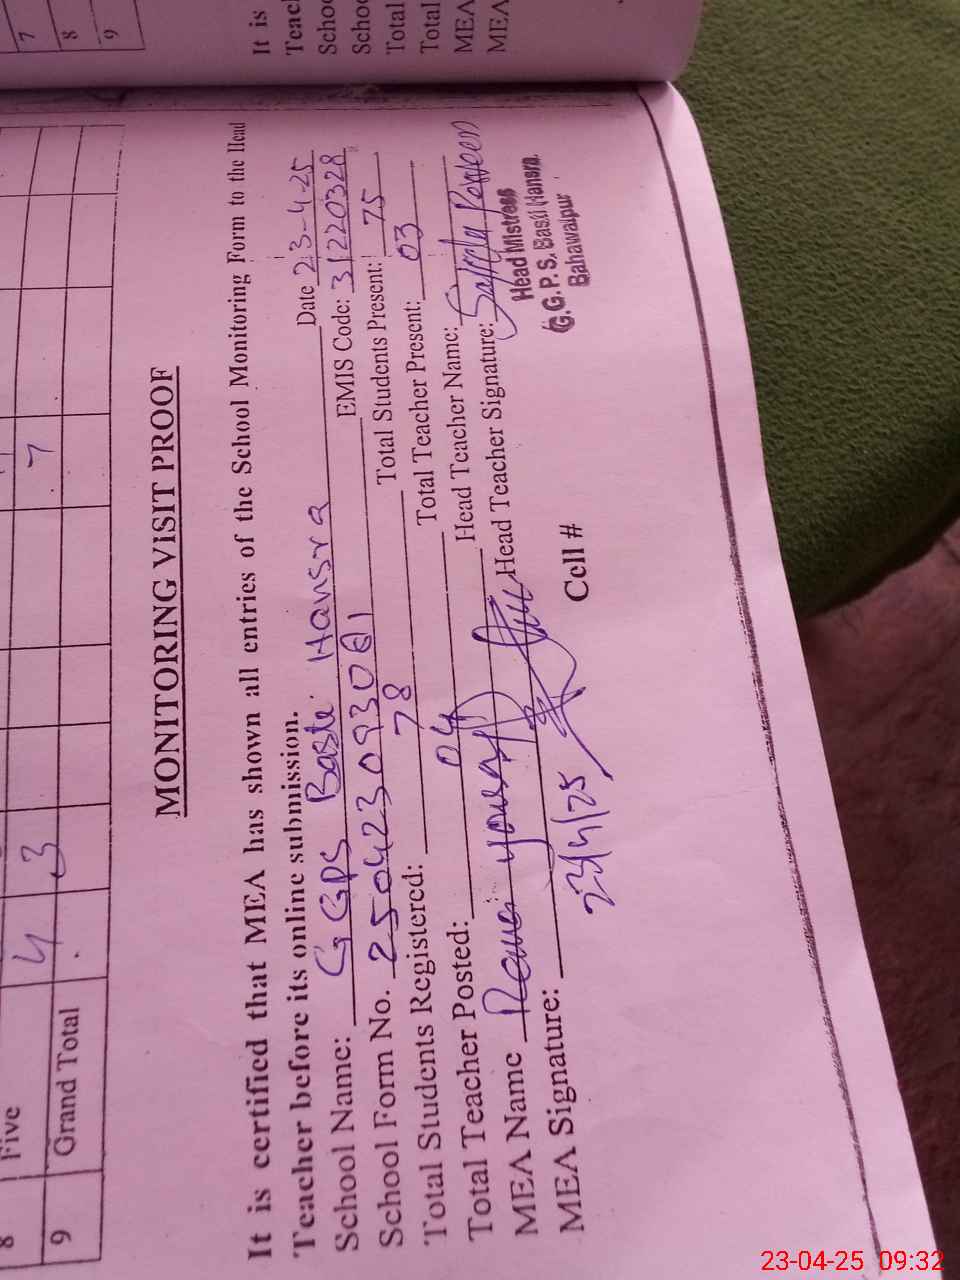 7
8
9
It is
Teach
Schoo
Schoo
Total
Total
MEA
MEA
8 Five 4 7
9 Grand Total 3
MONITORING VISIT PROOF
It is certified that MEA has shown all entries of the School Monitoring Form to the Head
Teacher before its online submission.
School Name: GGPS Basti Hansra Date 23-4-25
School Form No. 250423093061 EMIS Code: 31220328
Total Students Registered: 78 Total Students Present: 75
Total Teacher Posted: 04 Total Teacher Present: 03
MEA Name yousaf Head Teacher Name: Perveen
MEA Signature: Head Teacher Signature:
23/4/25 Cell #
Head Mistress
G.G.P.S. Basti Hansra
Bahawalpur
23-04-25 09:32